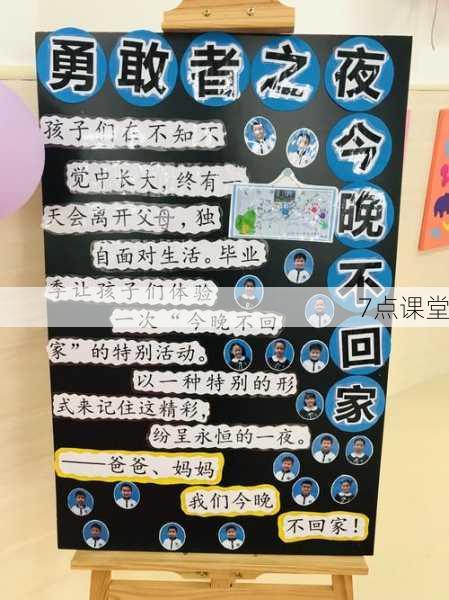 勇敢者之夜
今晚不回家
孩子们在不知不
觉中长大,终有一
天会离开父母,独
自面对生活。毕业
季让孩子们体验
一次“今晚不回
家”的特别活动。
以一种特别的形
式来记住这精彩,
纷呈永恒的一夜。
——爸爸、妈妈
我们今晚
不回家!
7点课堂